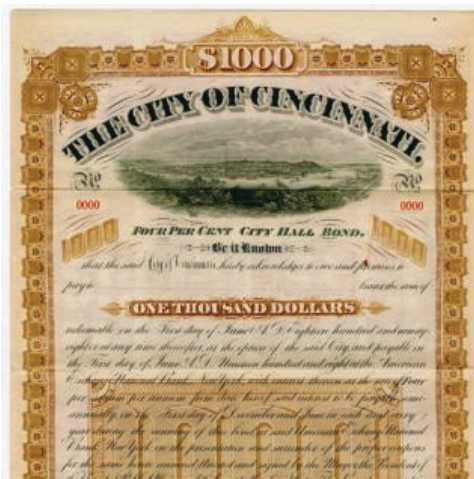 $1000
THE CITY OF CINCINNATI.
No No
0000 0000
FOUR PER CENT CITY HALL BOND.
Be it Known
that the said City of Cincinnati hereby acknowledges to owe and promises to
pay to the sum of
ONE THOUSAND DOLLARS
redeemable on the First day of June A.D. Eighteen hundred and ninety
eight or any time thereafter, at the option of the said City, and payable on
the First day of June A.D. Nineteen hundred and eight at the American
Exchange National Bank, New York, with interest thereon at the rate of Four
per centum per annum from date hereof said interest to be payable semi-
annually on the First day of December and June in each and every
year during the currency of this bond at said American Exchange National
Bank New York on the presentation and surrender of the proper coupons
for the same hereto annexed and signed by the Mayor, the President of